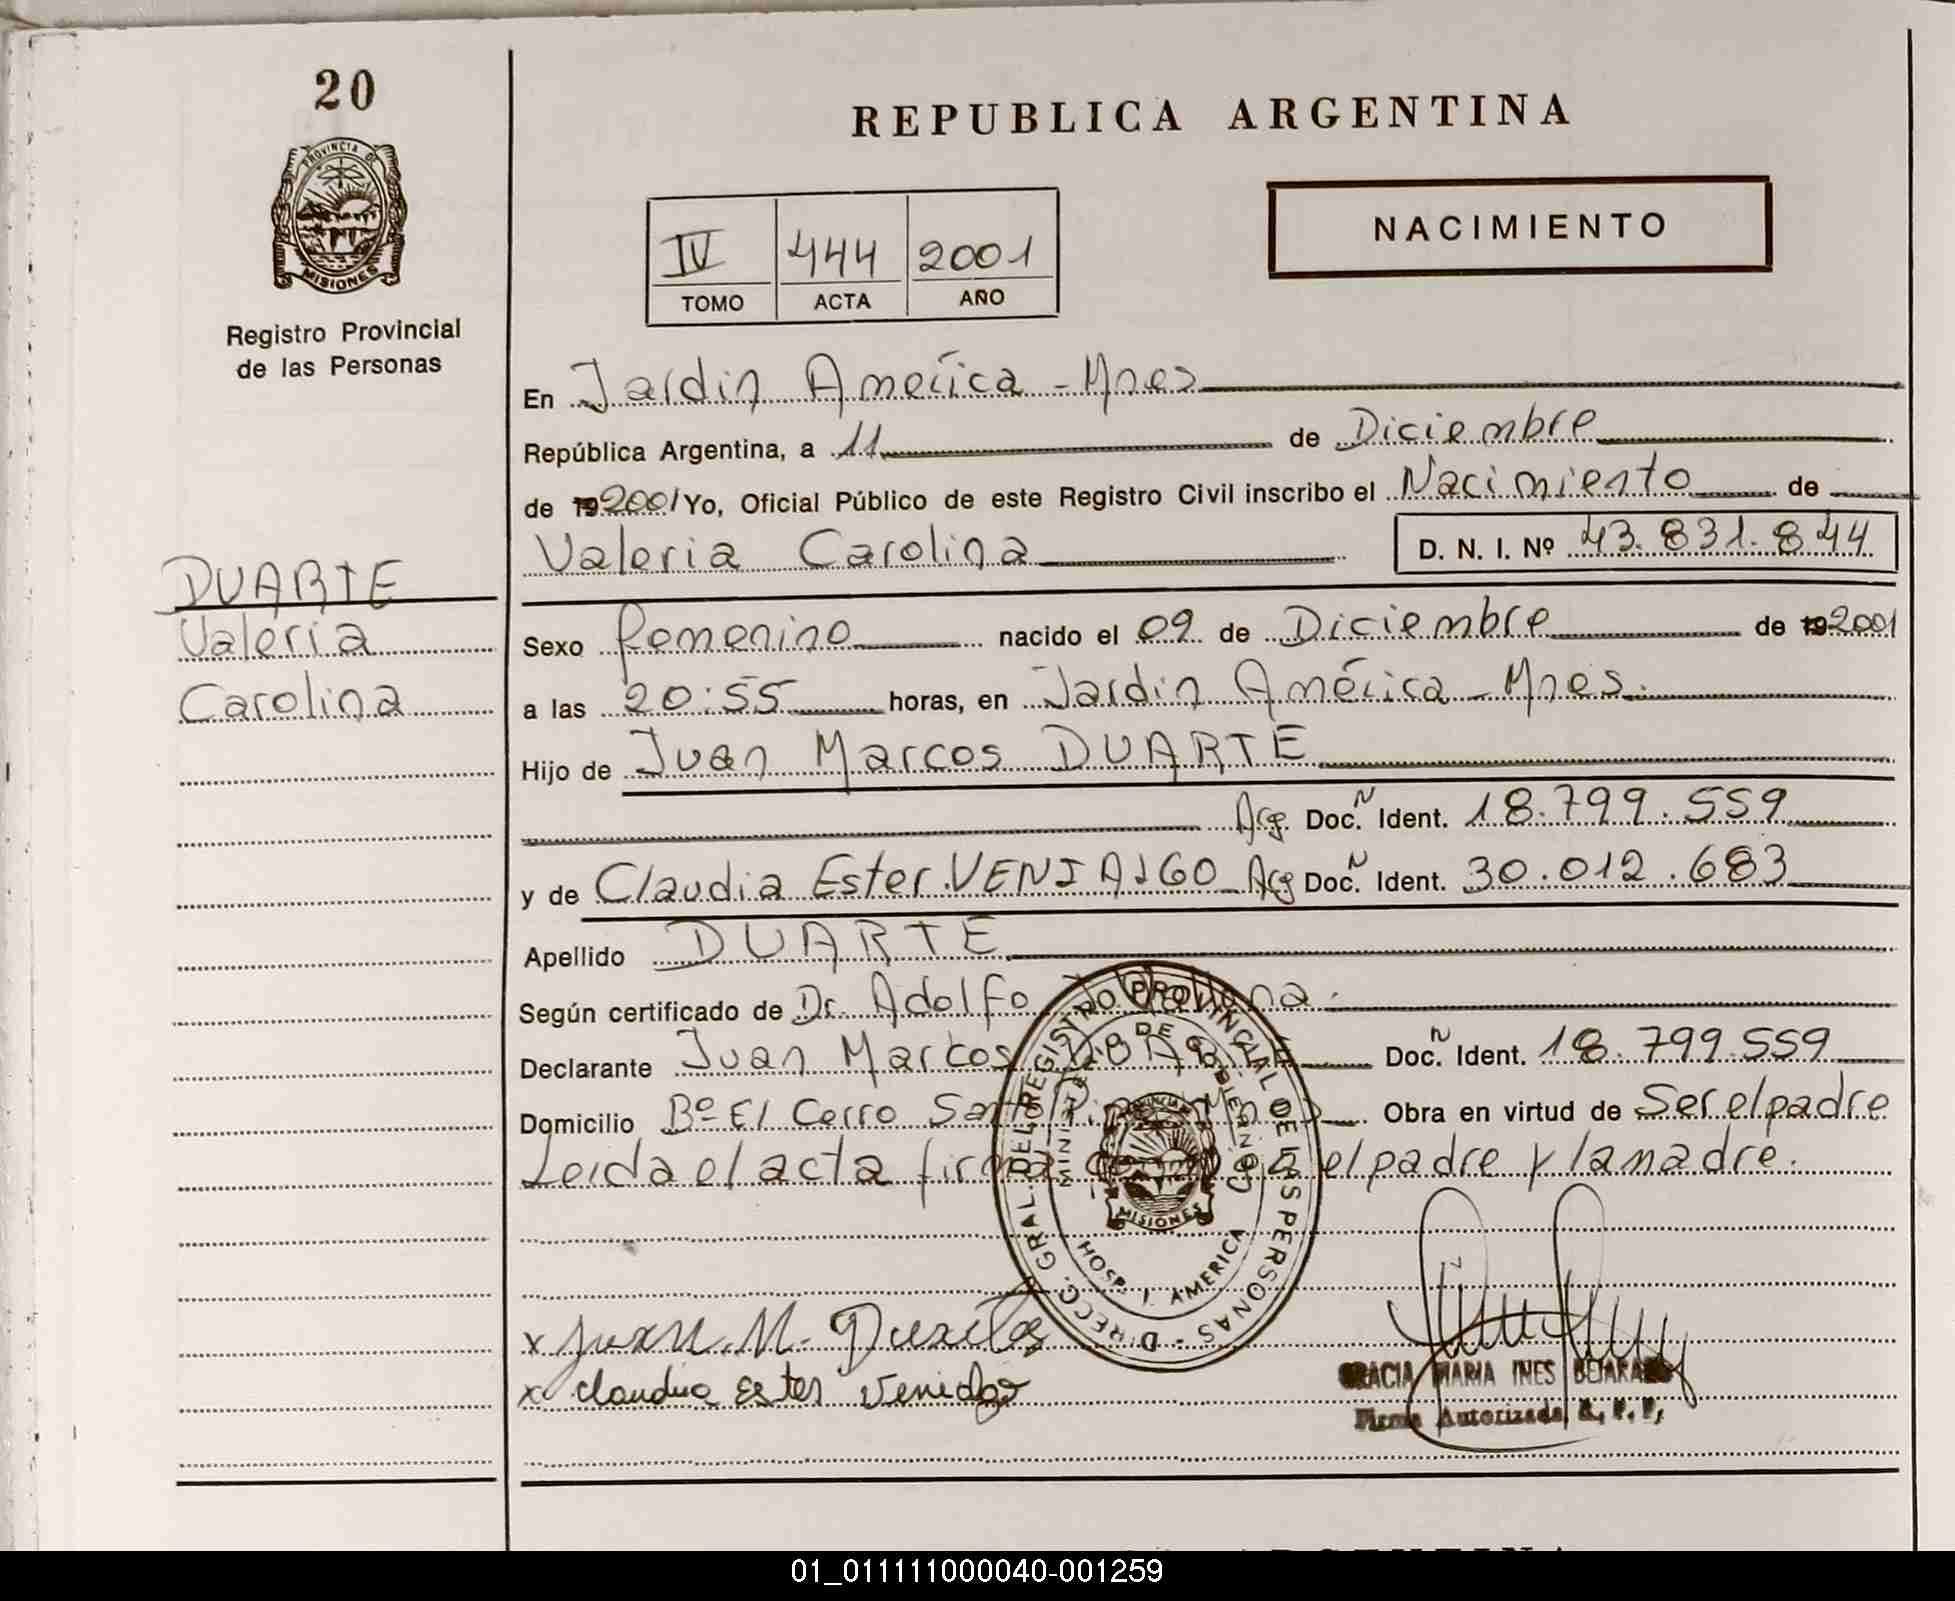 20
PROVINCIA DE
MISIONES
Registro Provincial
de las Personas
REPUBLICA ARGENTINA
NACIMIENTO
IV 444 2001
TOMO ACTA AÑO
En Jardin América - Mnes
República Argentina, a 11 de Diciembre
de 19 2001 Yo, Oficial Público de este Registro Civil inscribo el Nacimiento de
Valeria Carolina D. N. I. Nº 43.831.844
DUARTE
Valeria
Carolina
Sexo femenino nacido el 09 de Diciembre de 19 2001
a las 20:55 horas, en Jardin América - Mnes.
Hijo de Juan Marcos DUARTE
Arg. Doc. N Ident. 18.799.559
y de Claudia Ester VENIALGO Arg Doc. N Ident. 30.012.683
Apellido DUARTE
Según certificado de Dr. Adolfo
Declarante Juan Marcos DUARTE Doc. N Ident. 18.799.559
Domicilio Bº El Cerro San Obra en virtud de Ser el padre
Leida el acta el padre y la madre.
DIRECC. GRAL. DEL REGISTRO PROVINCIAL DE LAS PERSONAS
DE GOBIERNO
MISIONES
HOSP. J. AMERICA
x Juan M. Duarte
x Claudia Ester Venialgo
GRACIA MARIA INES BEJARANO
Firma Autorizada R. P. P.
01_011111000040-001259